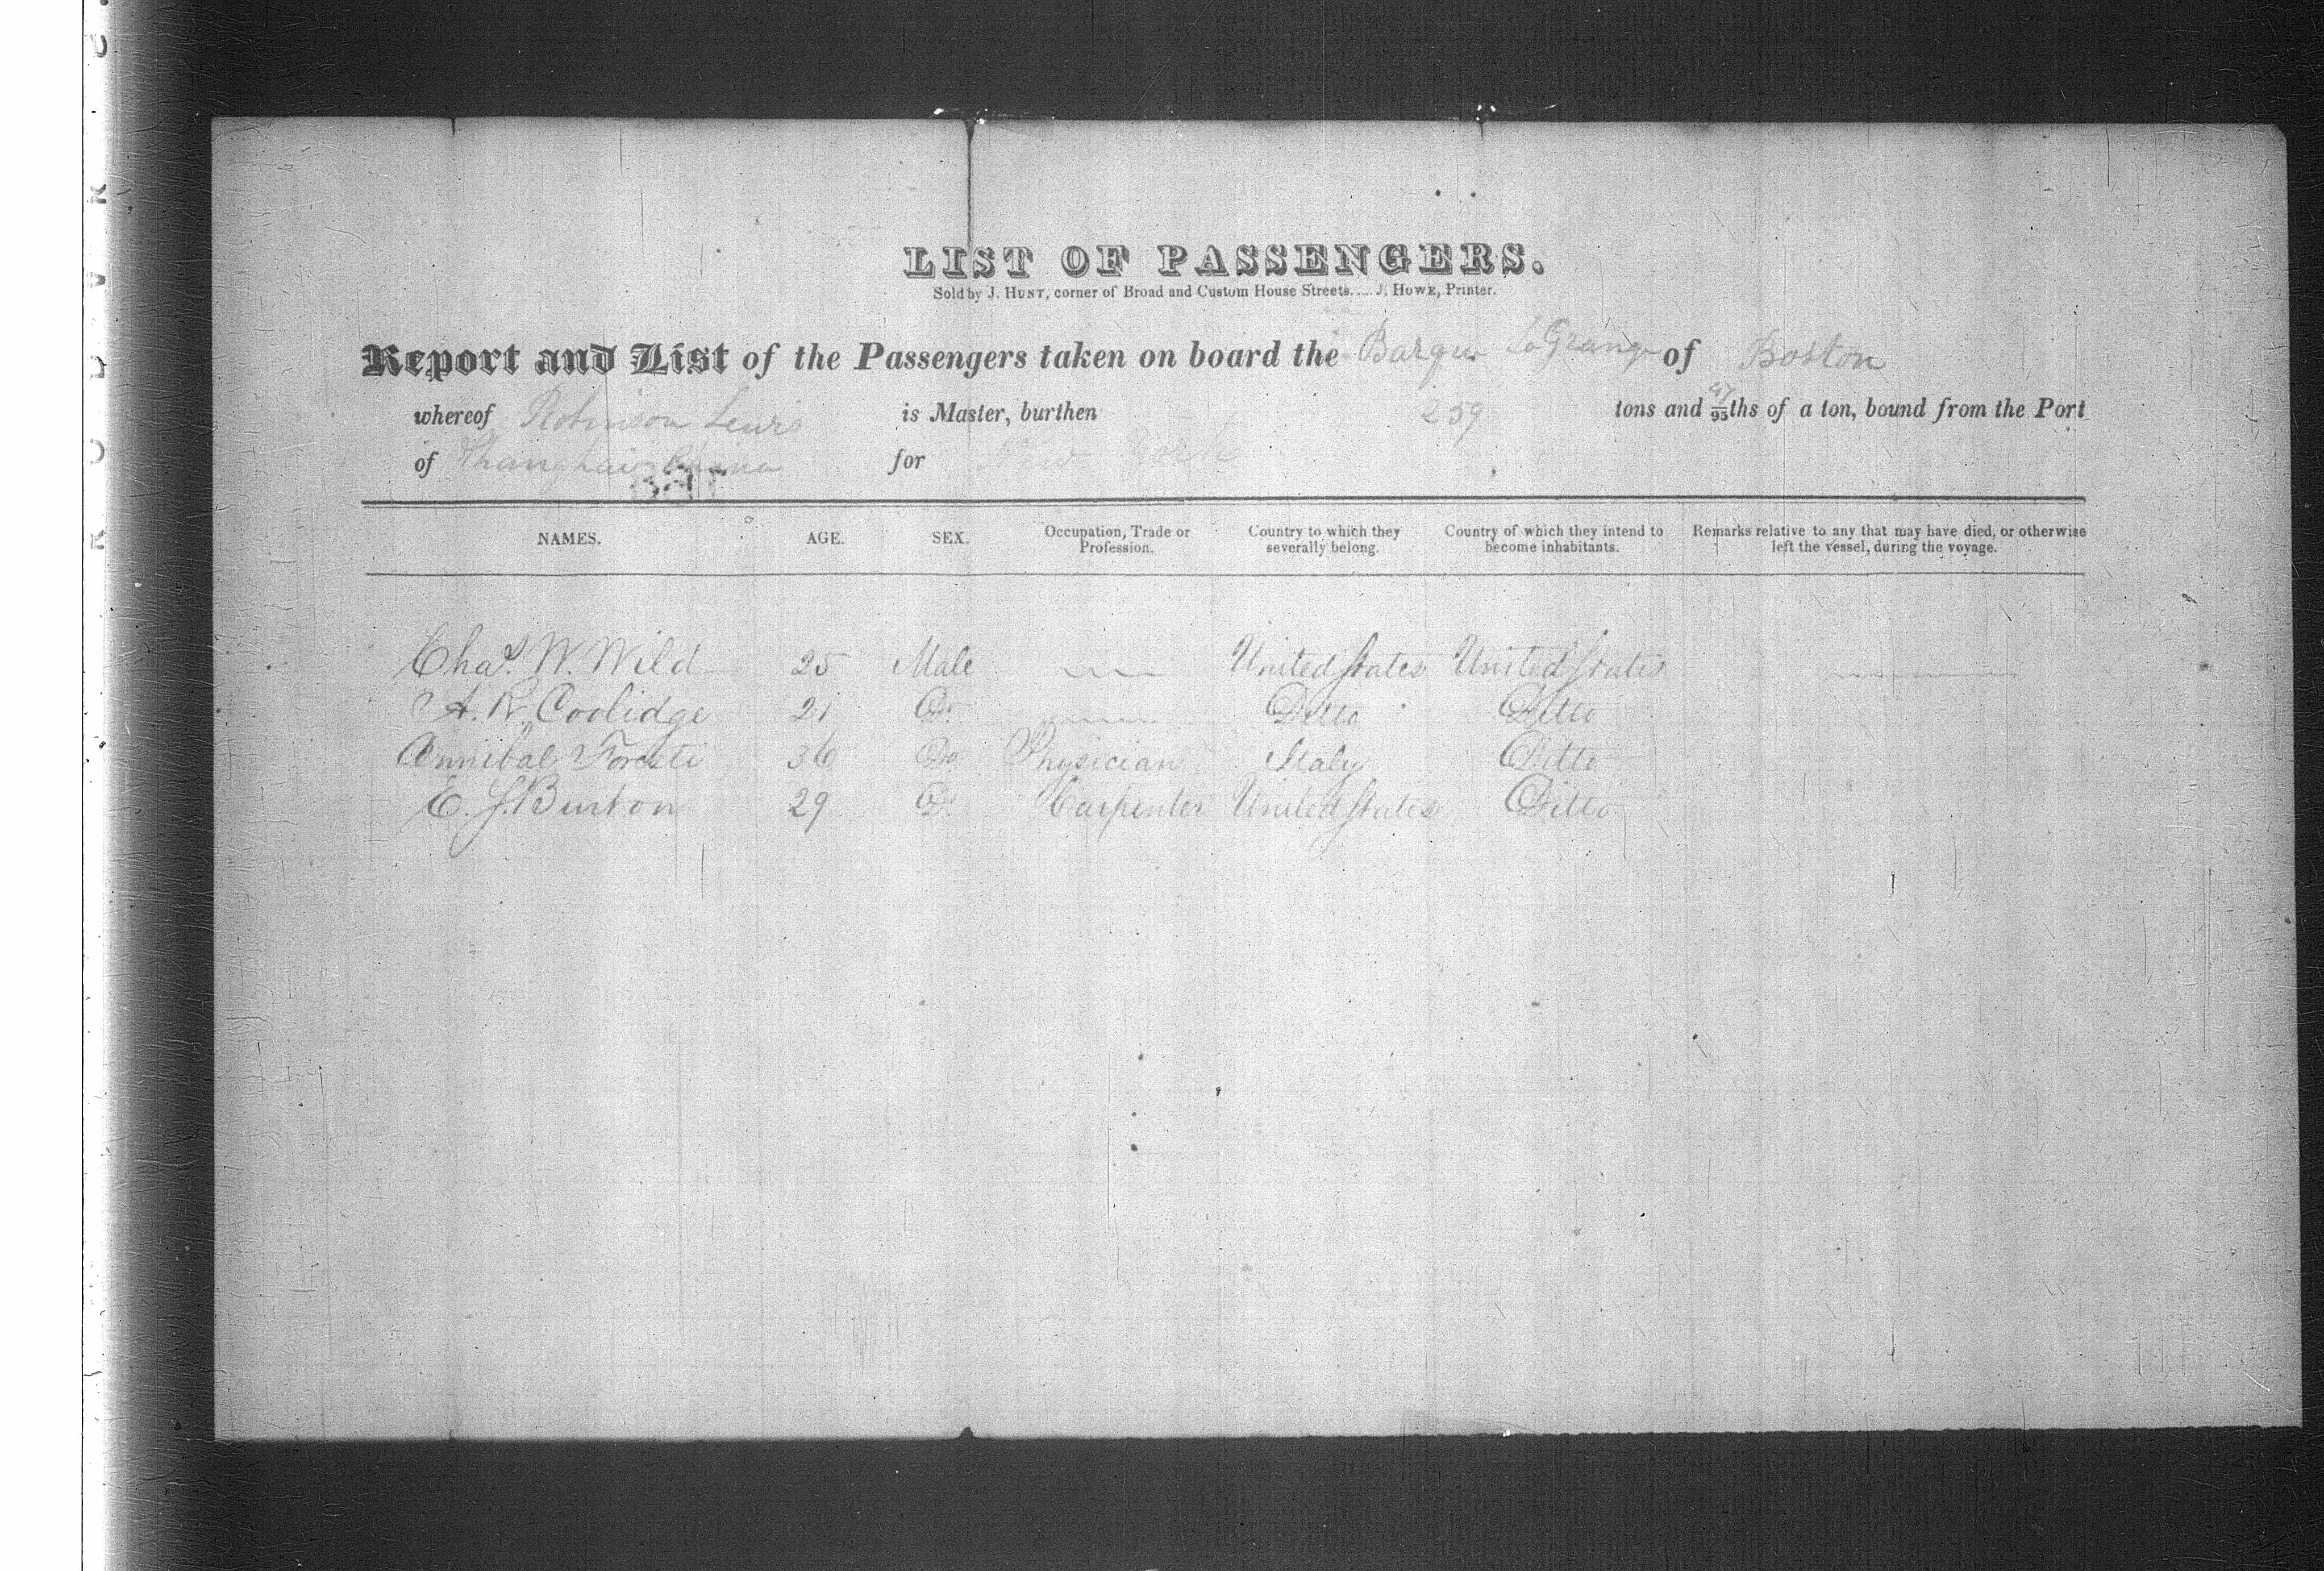 LIST OF PASSENGERS.
Sold by J. HUNT, corner of Broad and Custom House Streets.....J. HOWE, Printer.
Report and List of the Passengers taken on board the Barque LaGrange of Boston
whereof Robinson Lewis is Master, burthen 259 tons and 47/95ths of a ton, bound from the Port
of Shanghai China for New York
NAMES. AGE. SEX. Occupation, Trade or Profession. Country to which they severally belong. Country of which they intend to become inhabitants. Remarks relative to any that may have died, or otherwise left the vessel, during the voyage.
Chas. W. Wild 25 Male United States United States
A. R. Coolidge 21 Do. Ditto Ditto
Annibal Foresti 36 Do Physician Italy Ditto
E. S. Burton 29 Do. Carpenter United States Ditto